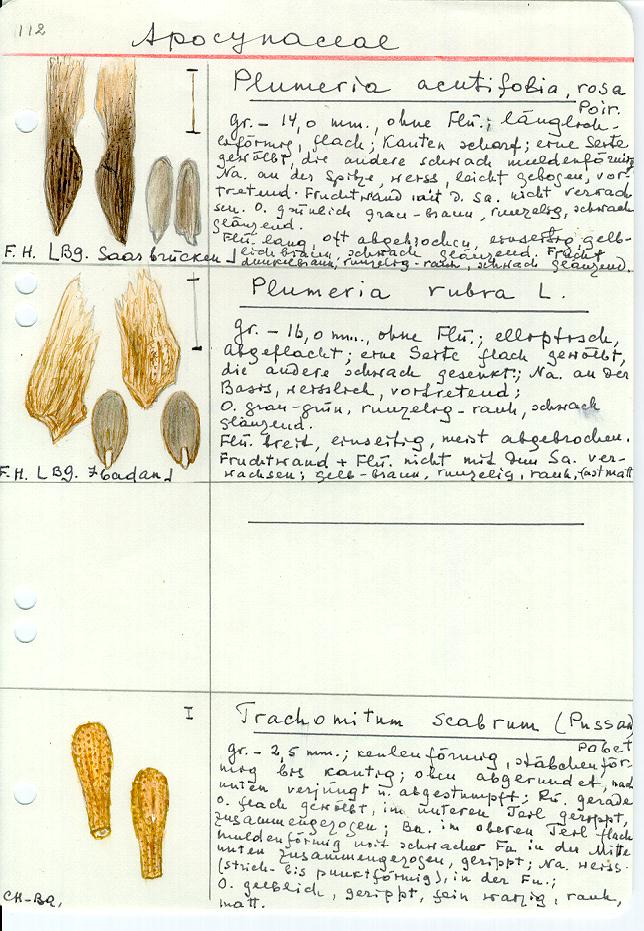 112
Apocynaceae
Plumeria acutifolia, rosa
Poir.
gr. - 14,0 mm., ohne Flü.; länglich-
eiförmig, flach; Kanten scharf; eine Seite
gewölbt, die andere schwach muldenförmig
Na. an der Spitze, weiss, leicht gebogen, vor-
tretend. Fruchtwand mit d. Sa. nicht verwach
sen. O. grünlich grau-braun, runzelig, schwach
glänzend.
Flü. lang, oft abgebrochen, einseitig gelb-
lich braun, schwach glänzend. Frucht
dunkelbraun, runzelig-rauh, schwach glänzend.
F.H. [Bg. Saarbrücken]
Plumeria rubra L.
gr. - 16,0 mm., ohne Flü.; elliptisch,
abgeflacht; eine Seite flach gewölbt,
die andere schwach gesenkt; Na. an der
Basis, weisslich, vortretend;
O. grau-grün, runzelig-rauh, schwach
glänzend.
Flü. breit, einseitig, meist abgebrochen.
Fruchtwand + Flü. nicht mit dem Sa. ver-
wachsen; gelb-braun, runzelig, rauh, fast matt
F.H. [Bg. Ibadan]
Trachomitum scabrum (Russan)
Pobet
gr. - 2,5 mm.; keulenförmig, stäbchenför-
mig bis kantig; oben abgerundet, nach
unten verjüngt u. abgestumpft; Rü. gerade
o. flach gewölbt, im unteren Teil gerippt,
zusammengezogen; Ba. im oberen Teil flach
muldenförmig mit schwacher Fu. in der Mitte
unten zusammengezogen, gerippt; Na. weiss.
(strich- bis punktförmig), in der Fu.;
O. gelblich, gerippt, fein warzig, rauh,
matt.
CH-Ba.